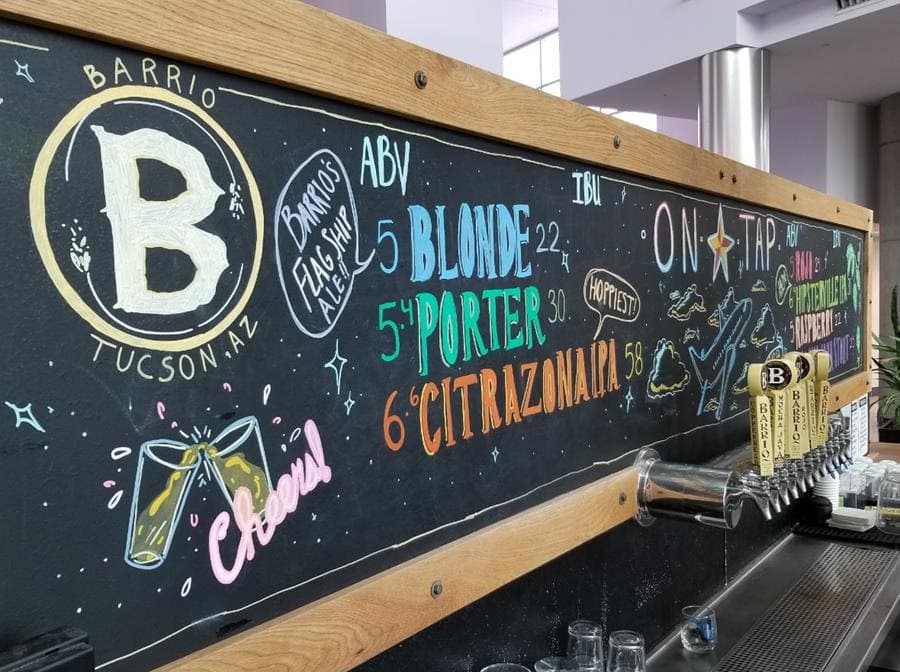 BARRIO
B
TUCSON, AZ
BARRIO'S
FLAGSHIP
ALE!!
ABV
IBU
5 BLONDE 22
5.4 PORTER 30
6.6 CITRAZONA IPA 58
HOPPIEST!
Cheers!
ON TAP
ABV
5 ROJO 24
HIPSTERVILLE
5 RASPBERRY 22
B
BARRIO
MOCHA JAVA
BARRIO
BARRIO